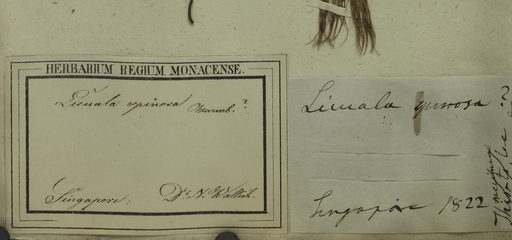 HERBARIUM REGIUM MONACENSE.
Licuala spinosa Wurmb.?
Singapore: Dr. N. Wallich.
Licuala spinosa
Singapore 1822